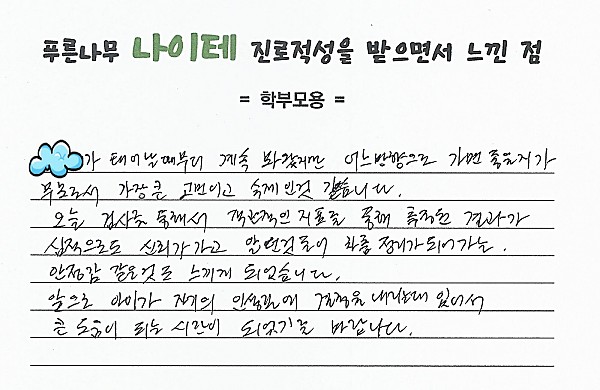 푸른나무 나이테 진로적성을 받으면서 느낀 점
= 학부모용 =
가 태어날때부터 계속 봐왔지만 어느방향으로 가면 좋을지가
부모로서 가장 큰 고민이고 숙제인것 같습니다.
오늘 검사를 통해서 객관적인 지표를 통해 측정된 결과가
심적으로도 신뢰가 가고 알던것들이 좌를 정리가 되어가는.
안정감 같은것도 느끼게 되었습니다.
앞으로 아이가 자기의 인생길에 결정을 내리는데 있어서
큰 도움이 되는 시간이 되었기를 바랍니다.